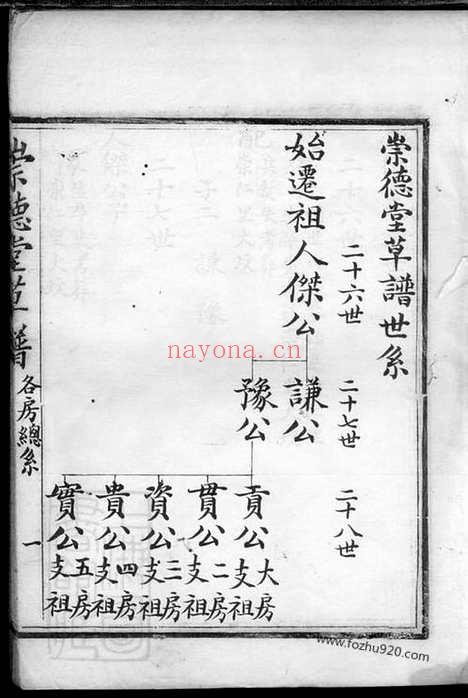 崇德堂草譜世系
二十六世
二十七世
二十八世
始遷祖人傑公
謙公
豫公
貢公大房支祖
貫公二房支祖
資公三房支祖
貴公四房支祖
實公五房支祖
崇德堂草譜
各房總系
一
nayona.cn
www.fozhu920.com